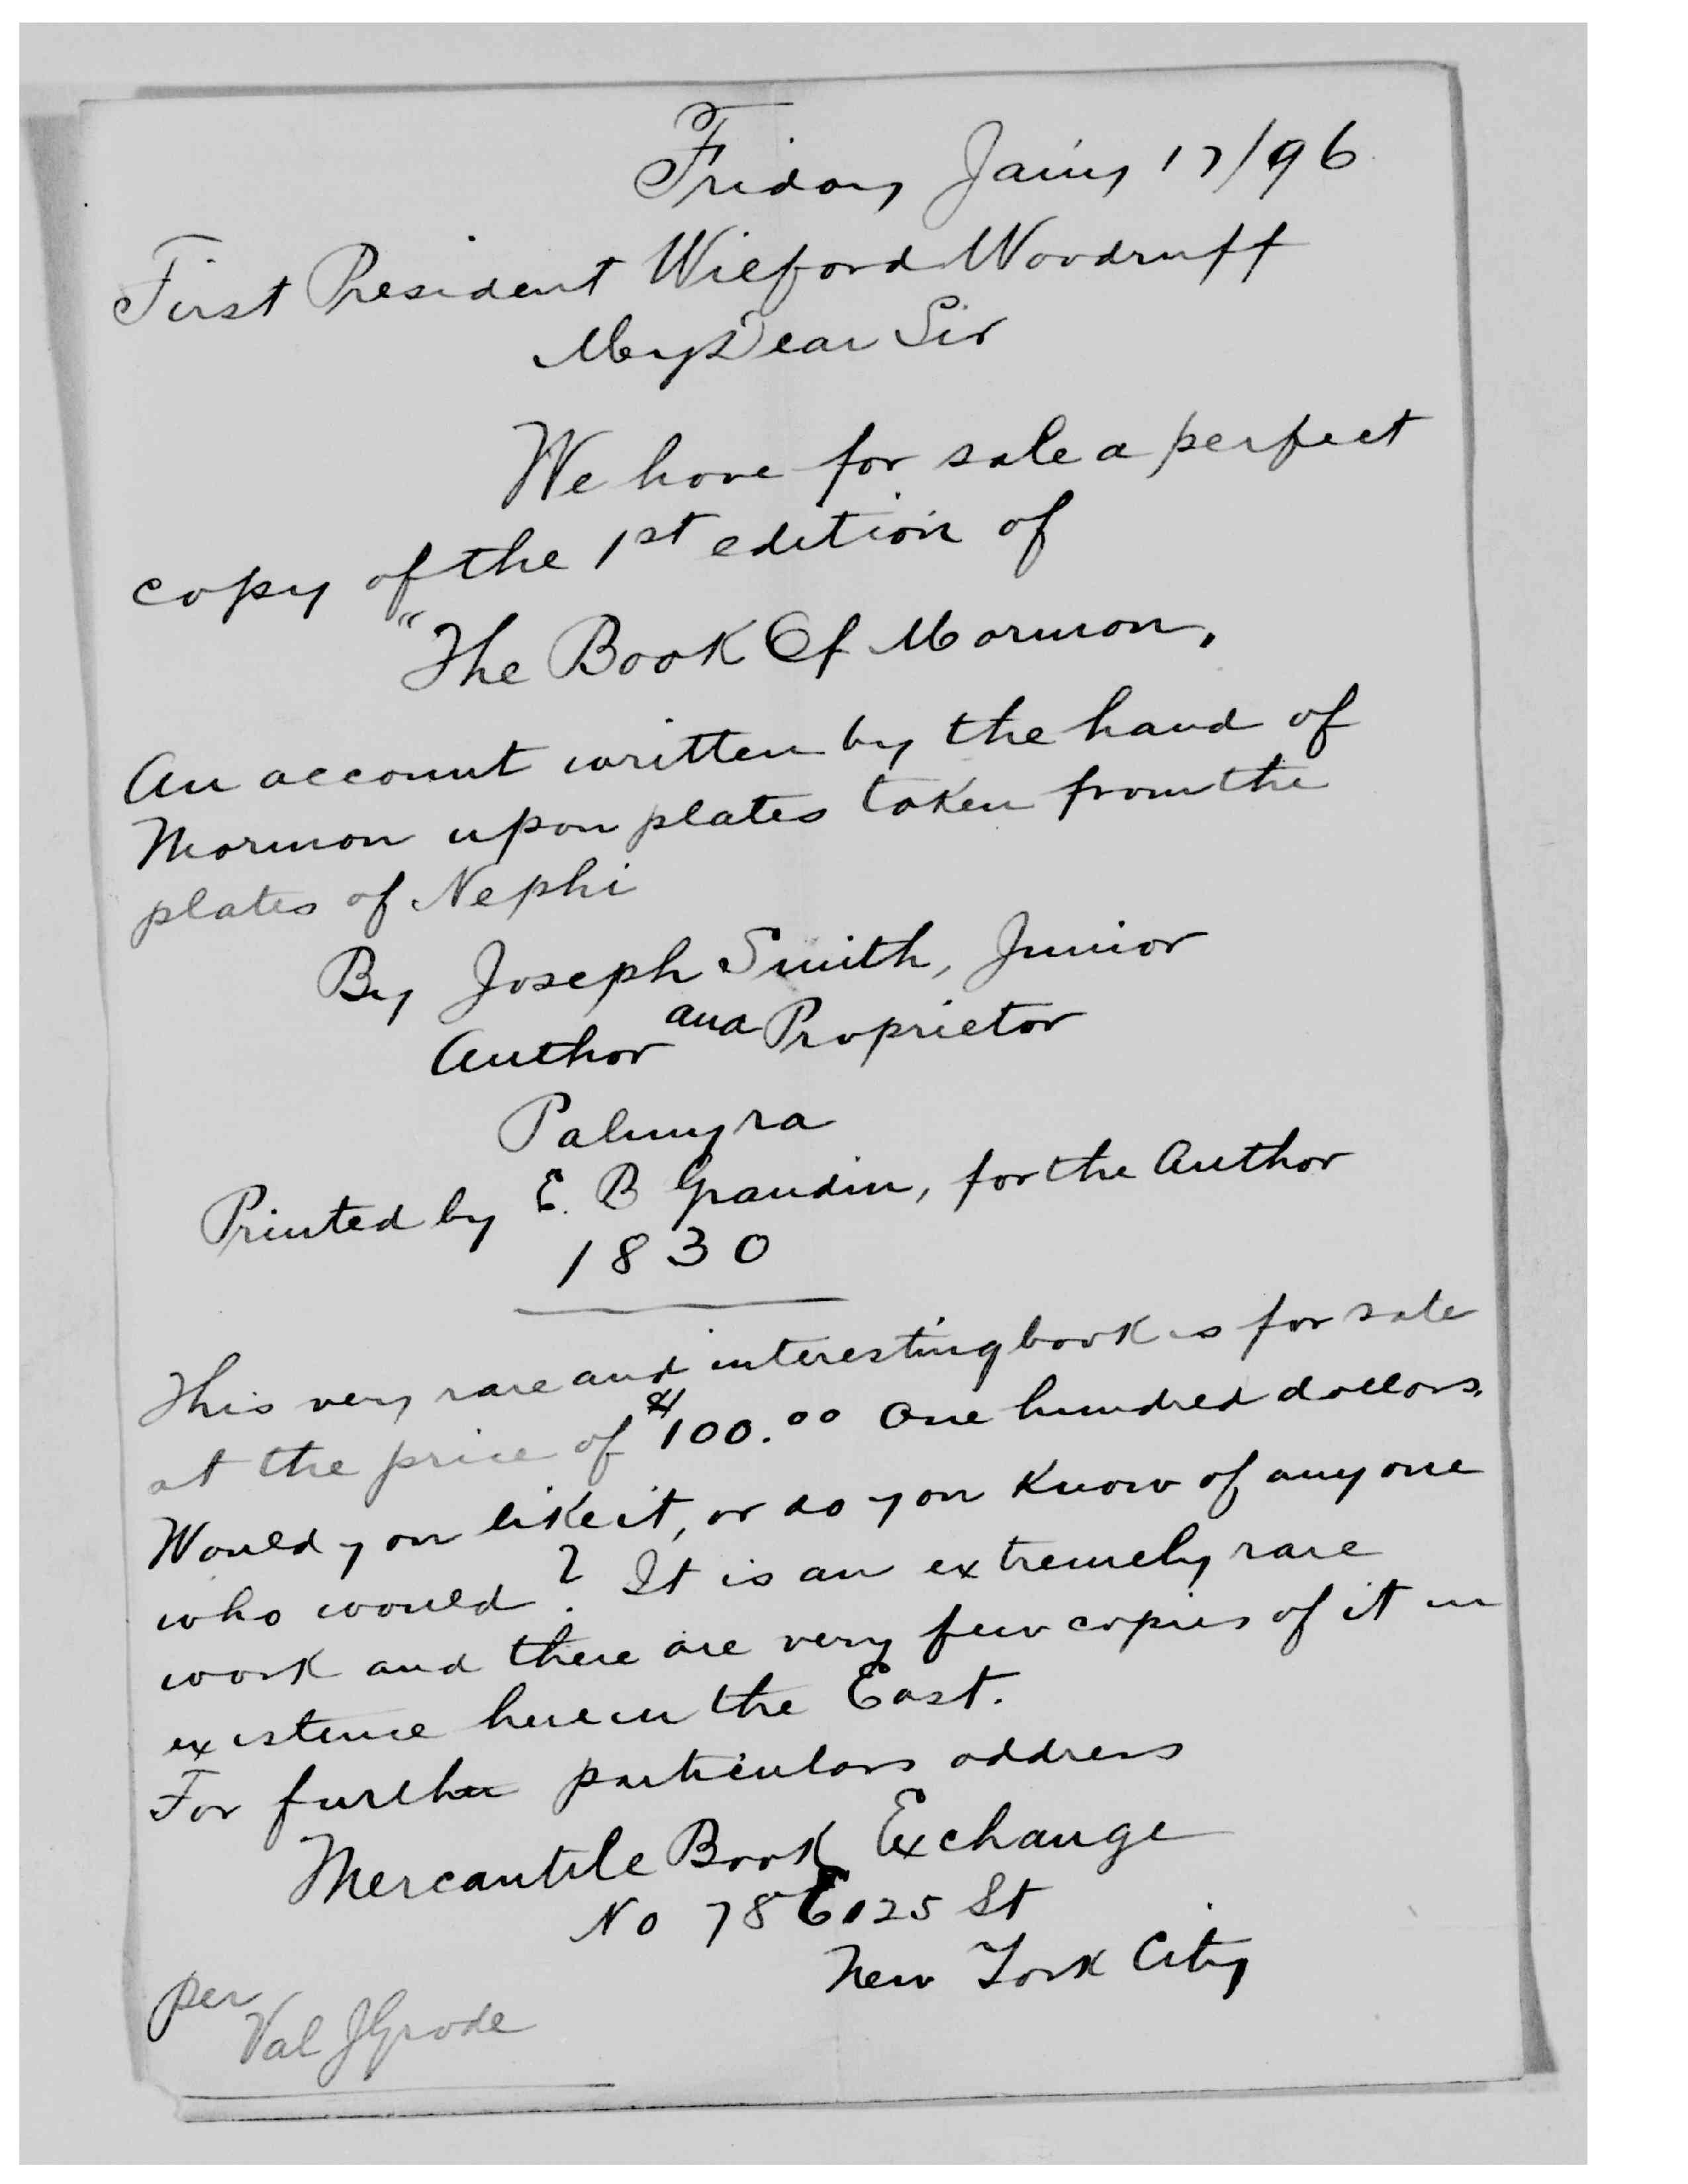 Friday Jany 17/96
First President Wilford Woodruff
My Dear Sir
We have for sale a perfect
copy of the 1st edition of
"The Book Of Mormon,
An account written by the hand of
Mormon upon plates taken from the
plates of Nephi
By Joseph Smith, Junior
Author and Proprietor
Palmyra
Printed by E. B Grandin, for the Author
1830
This very rare and interesting book is for sale
at the price of $100.00 One hundred dollars.
Would you like it, or do you know of any one
who would? It is an extremely rare
work and there are very few copies of it in
existence here in the East.
For further particulars address
Mercantile Book Exchange
No 78 E 125 St
New York City
per
Val J Grode